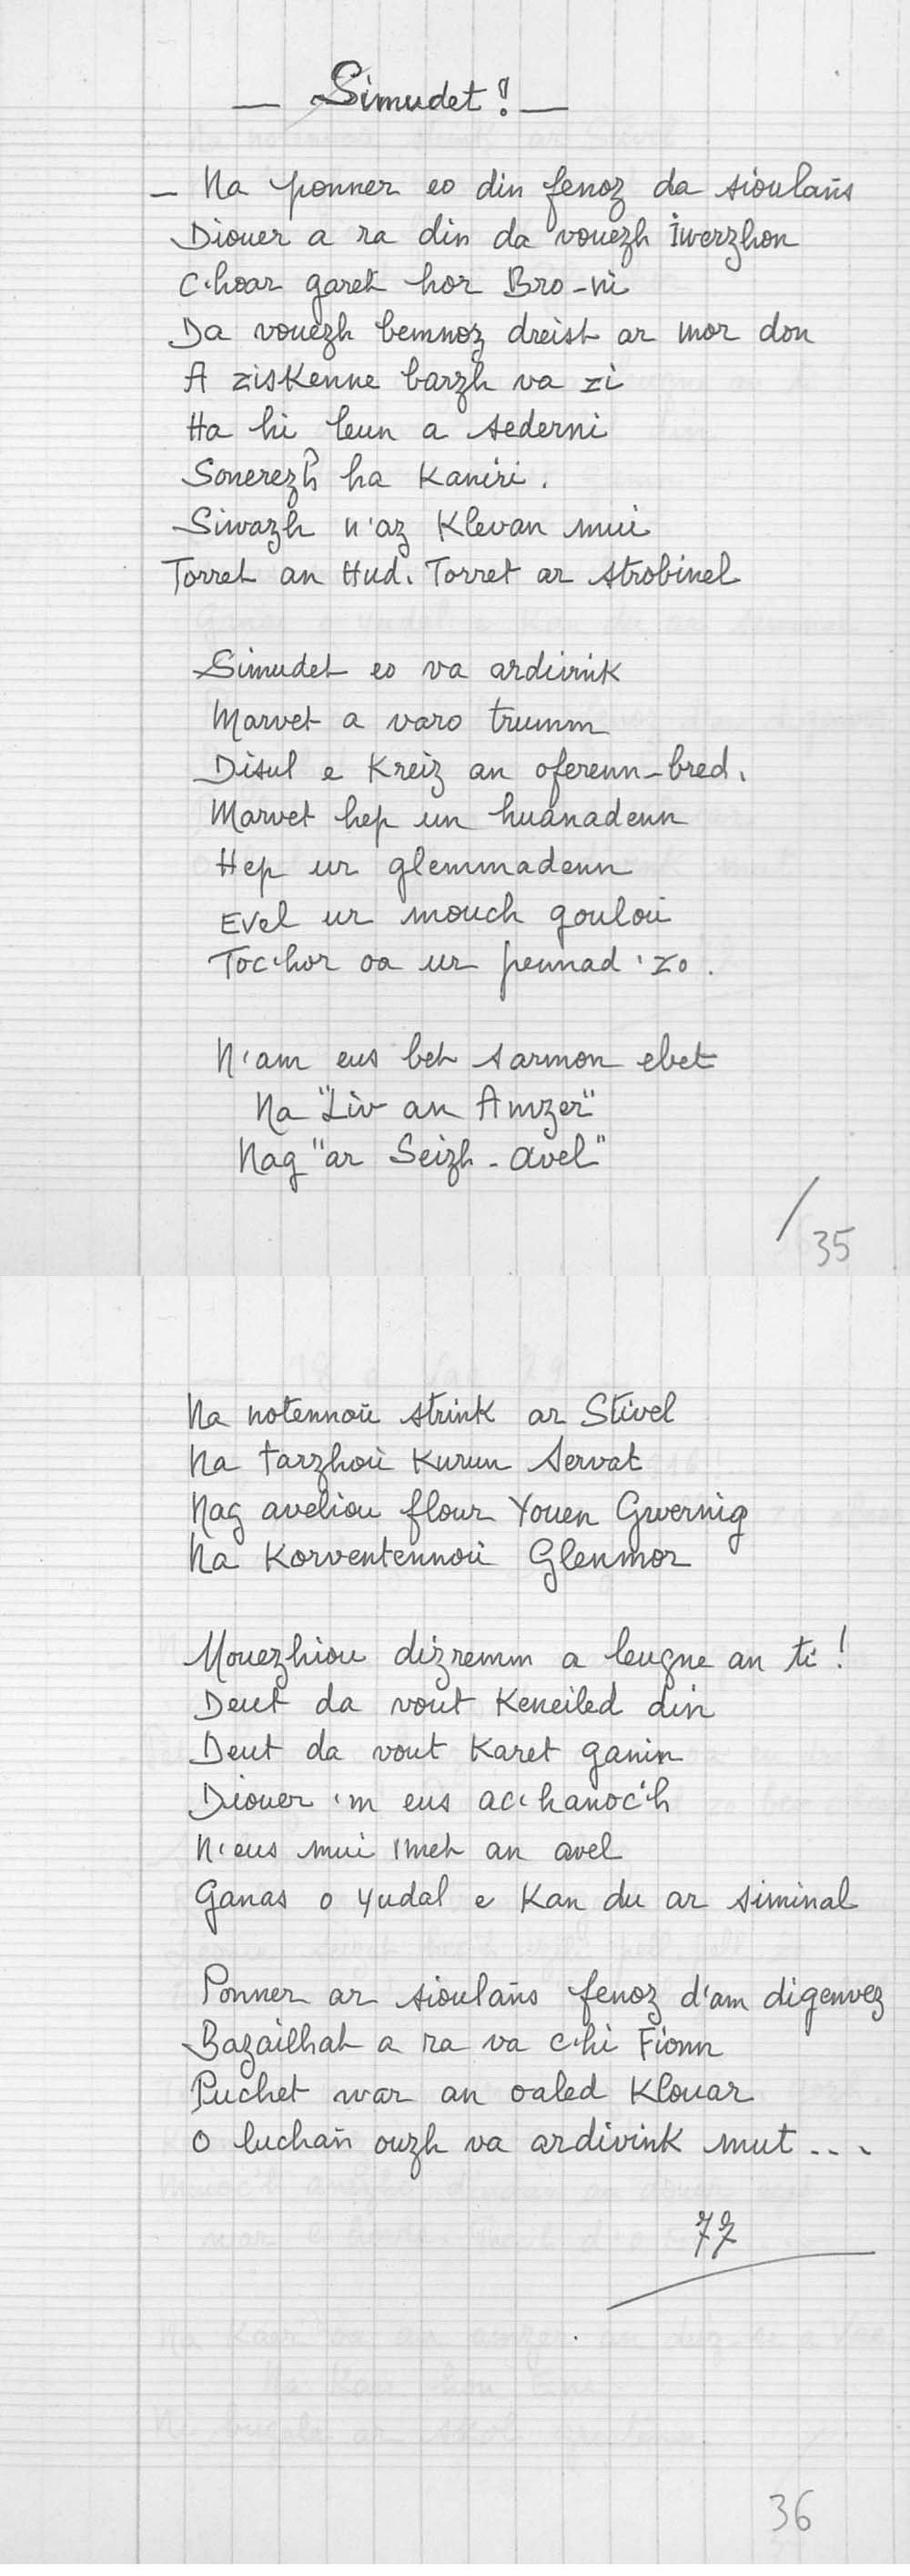 — Simudet ! —
— Na ponner eo din fenoz da sioulañs
Diouer a ra din da vouezh Iwerzhon
C'hoar garet hor Bro-ni
Da vouezh bemnoz dreist ar mor don
A ziskenne barzh va zi
Ha hi leun a sederni
Sonerezh ha Kaniri.
Siwazh n'az Klevan mui
Torret an Hud. Torret ar strobinel
Simudet eo va ardivink
Marvet a varo trumm
Disul e Kreiz an oferenn-bred.
Marvet hep un huanadenn
Hep ur glemmadenn
Evel ur mouch gouloù
Toc'hor oa ur pennad 'zo.
N'am eus bet sarmon ebet
Na "Liv an Amzer"
Nag "ar Seizh-avel"
/
35
Na notennoù strink ar Stivel
Na tarzhoù Kurun Servat
Nag aveliou flour Youen Gwernig
Na Korventennoù Glenmor
Mouezhiou dizremm a leugne an ti !
Deut da vout Keneiled din
Deut da vout Karet ganin
Diouer 'm eus ac'hanoc'h
N'eus mui 'met an avel
Ganas o yudal e Kan du ar siminal
Ponner ar sioulañs fenoz d'am digenvez
Bazailhat a ra va c'hi Fionn
Puchet war an oaled Klouar
O luchañ ouzh va ardivink mut ...
77
36